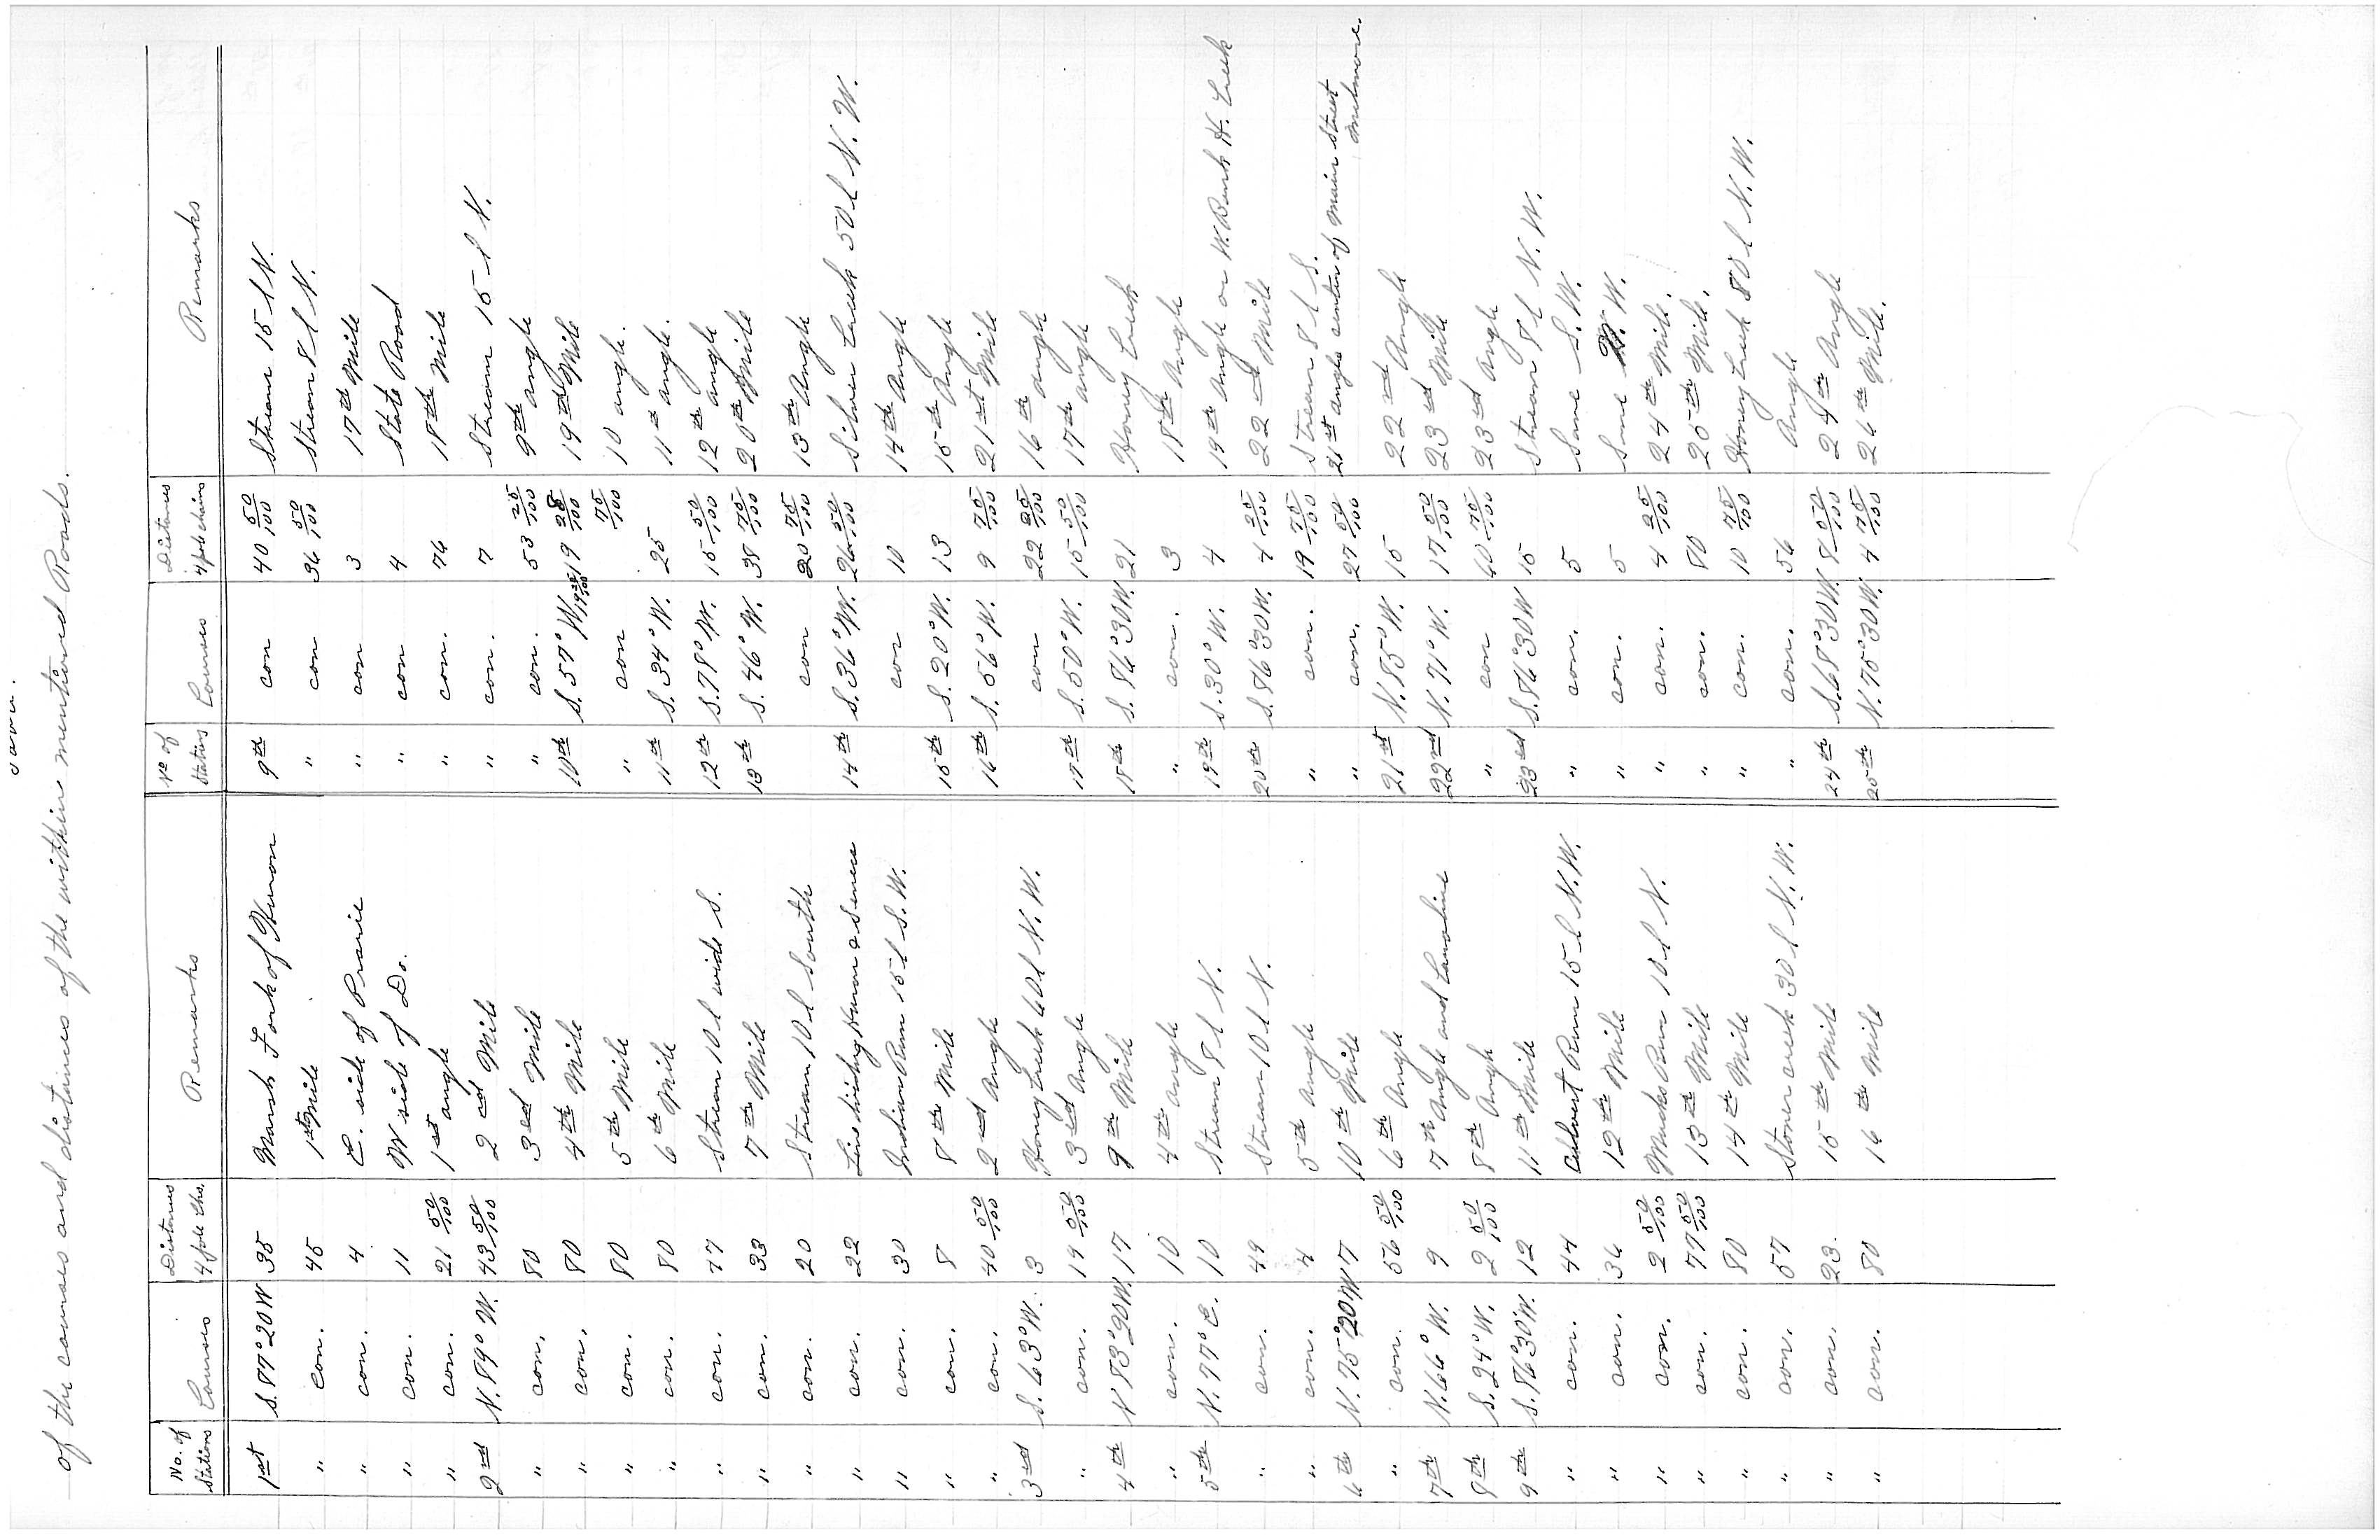 of the courses and distances of the within mentioned Roads.
No. of Stations Courses Distances 4 pole chs. Remarks No of Stations Courses Distances 4 pole chains Remarks
1st S. 87° 20 W 35 Marsh Fork of Huron 9th con 40 50/100 Stream 15 l N.
" con. 45 1st Mile " con 36 50/100 Stream 8 l N.
" con. 4 E. side of Prairie " con 3 17th Mile
" con. 11 W side of Do. " con 4 State Road
" con. 21 50/100 1st angle " con. 76 18th Mile
2nd N. 89° W. 43 50/100 2nd Mile " con. 7 Stream 15 l N.
" con. 80 3ed Mile " con. 53 25/100 9th angle
" con. 80 4th Mile 10th S. 57° W. 19 25/100 19th Mile
" con. 80 5th Mile " con 75/100 10 angle.
" con. 80 6th Mile 11th S. 34° W. 25 11th angle.
" con. 47 Stream 10 l wide S. 12th S. 78° W. 15 50/100 12th angle
" con. 33 7th Mile 13th S. 46° W. 38 75/100 20th Mile
" con. 20 Stream 10 l South con 20 75/100 13th Angle
" con. 22 Line dividing Huron & Seneca 14th S. 36° W. 26 50/100 Silver Creek 50 l N. W.
" con. 30 Indian Run 15 l S. W. con 10 14th Angle
" con. 8 8th Mile 15th S. 20° W. 13 15th Angle
" con. 40 50/100 2nd Angle 16th S. 56° W. 9 75/100 21st Mile
3ed S. 63° W. 3 Honey Creek 60 l N. W. con 22 25/100 16th angle
" con. 19 50/100 3ed Angle 17th S. 50° W. 15 50/100 17th angle
4th N 83° 20 W. 17 9th Mile 18th S. 86° 30 W. 21 Honey Creek
" con. 10 4th angle " con. 3 18th Angle
5th N. 77° E. 10 Stream 8 l N. 19th S. 30° W. 4 19th Angle on W. Bank H. Creek
" con. 49 Stream 10 l N. 20th S. 86° 30 W. 4 25/100 22nd Mile
" con. 4 5th angle " con. 19 75/100 Stream 8 l S.
6th N. 75° 20 W 7 10th Mile " con. 27 50/100 21st angle center of Main Street Melmore.
" con. 56 50/100 6th Angle 21st N. 85° W. 15 22nd Angle
7th N. 66° W. 9 7th Angle and Land line 22nd N. 71° W. 17 50/100 23ed Mile
8th S. 24° W. 2 50/100 8th Angle " con 60 75/100 23ed Angle
9th S. 86° 30 W. 12 11th Mile 23ed S. 86° 30 W 15 Stream 8 l N. W.
" con. 44 Culvert Run 15 l N. W. " con. 5 Same S. W.
" con. 36 12th Mile " con. 5 Same N. W.
" con. 2 50/100 Mucks Run 10 l N. " con. 4 25/100 24th Mile.
" con. 77 50/100 13th Mile " con. 80 25th Mile.
" con. 80 14th Mile " con. 10 75/100 Honey Creek 80 l N. W.
" con. 57 Stoner creek 30 l N. W. " con. 56 Angle
" con. 23 15th Mile 24th S. 68° 30 W. 8 50/100 24th Angle
" con. 80 16th Mile 25th N. 75° 30 W. 4 75/100 26th Mile.